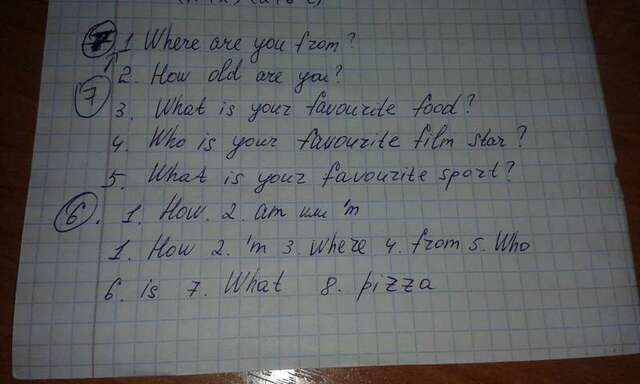 7 1 Where are you from?
7 2. How old are you?
3. What is your favourite food?
4. Who is your favourite film star?
5. What is your favourite sport?
6. 1. How. 2. am или 'm
1. How 2. 'm 3. Where 4. from 5. Who
6. is 7. What 8. pizza